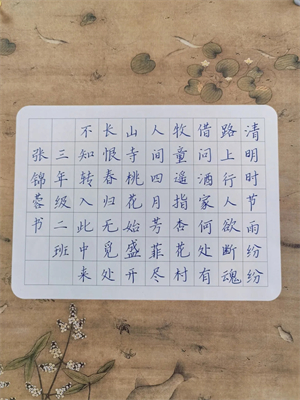 清明时节雨纷纷
路上行人欲断魂
借问酒家何处有
牧童遥指杏花村
人间四月芳菲尽
山寺桃花始盛开
长恨春归无觅处
不知转入此中来
三年级二班
张锦蓉书